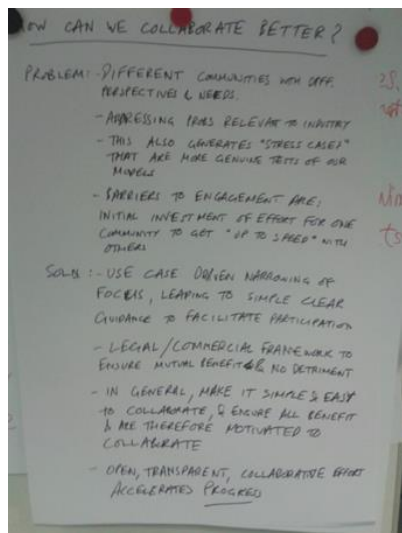 HOW CAN WE COLLABORATE BETTER?
PROBLEM: - DIFFERENT COMMUNITIES WITH DIFF.
PERSPECTIVES & NEEDS.
- ADDRESSING PROBS RELEVAT TO INDUSTRY
- THIS ALSO GENERATES "STRESS CASES"
THAT ARE MORE GENUINE TESTS OF OUR
MODELS
- BARRIERS TO ENGAGEMENT ARE;
INITIAL INVESTMENT OF EFFORT FOR ONE
COMMUNITY TO GET "UP TO SPEED" WITH
OTHERS
SOLNS: - USE CASE DRIVEN NARROWING OF
FOCUS, LEADING TO SIMPLE CLEAR
GUIDANCE TO FACILITATE PARTICIPATION
- LEGAL/COMMERCIAL FRAMEWORK TO
ENSURE MUTUAL BENEFIT & NO DETRIMENT
- IN GENERAL, MAKE IT SIMPLE & EASY
TO COLLABORATE, & ENSURE ALL BENEFIT
& ARE THEREFORE MOTIVATED TO
COLLABORATE
- OPEN, TRANSPARENT, COLLABORATIVE EFFORT
ACCELERATES PROGRESS